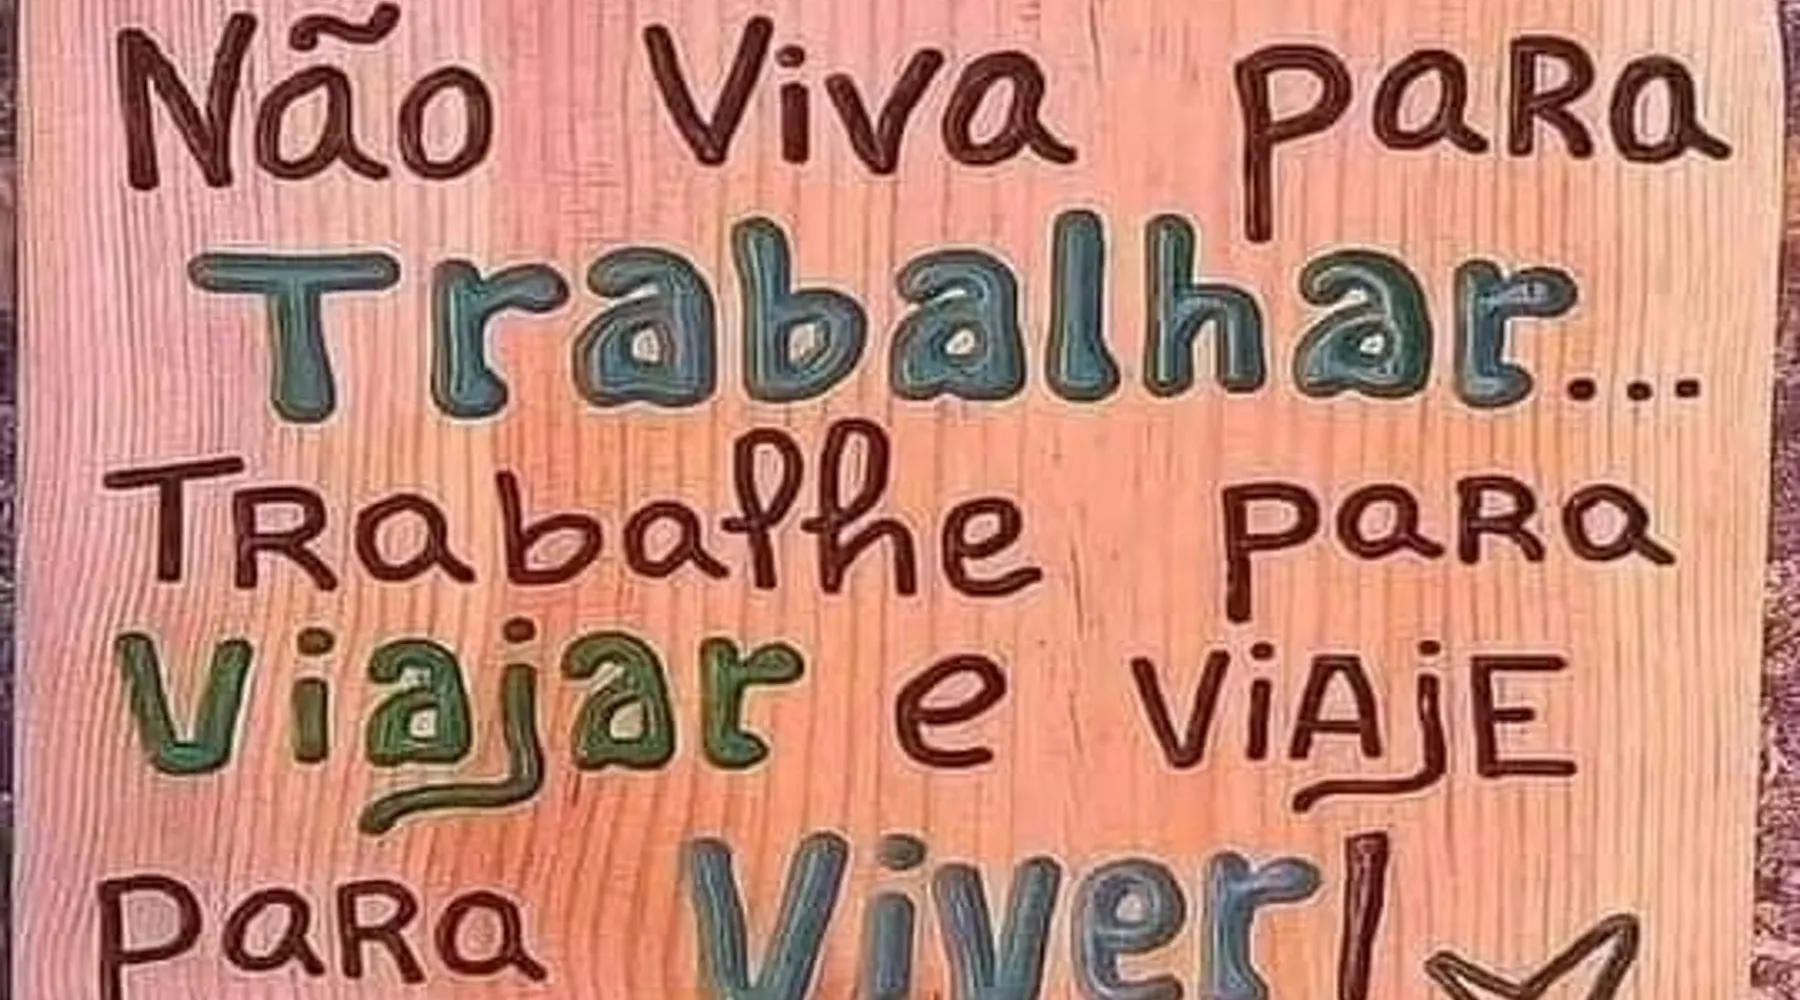 Não Viva paRa
Trabalhar...
TRabalhe paRa
Viajar e ViAjE
paRa Viver!